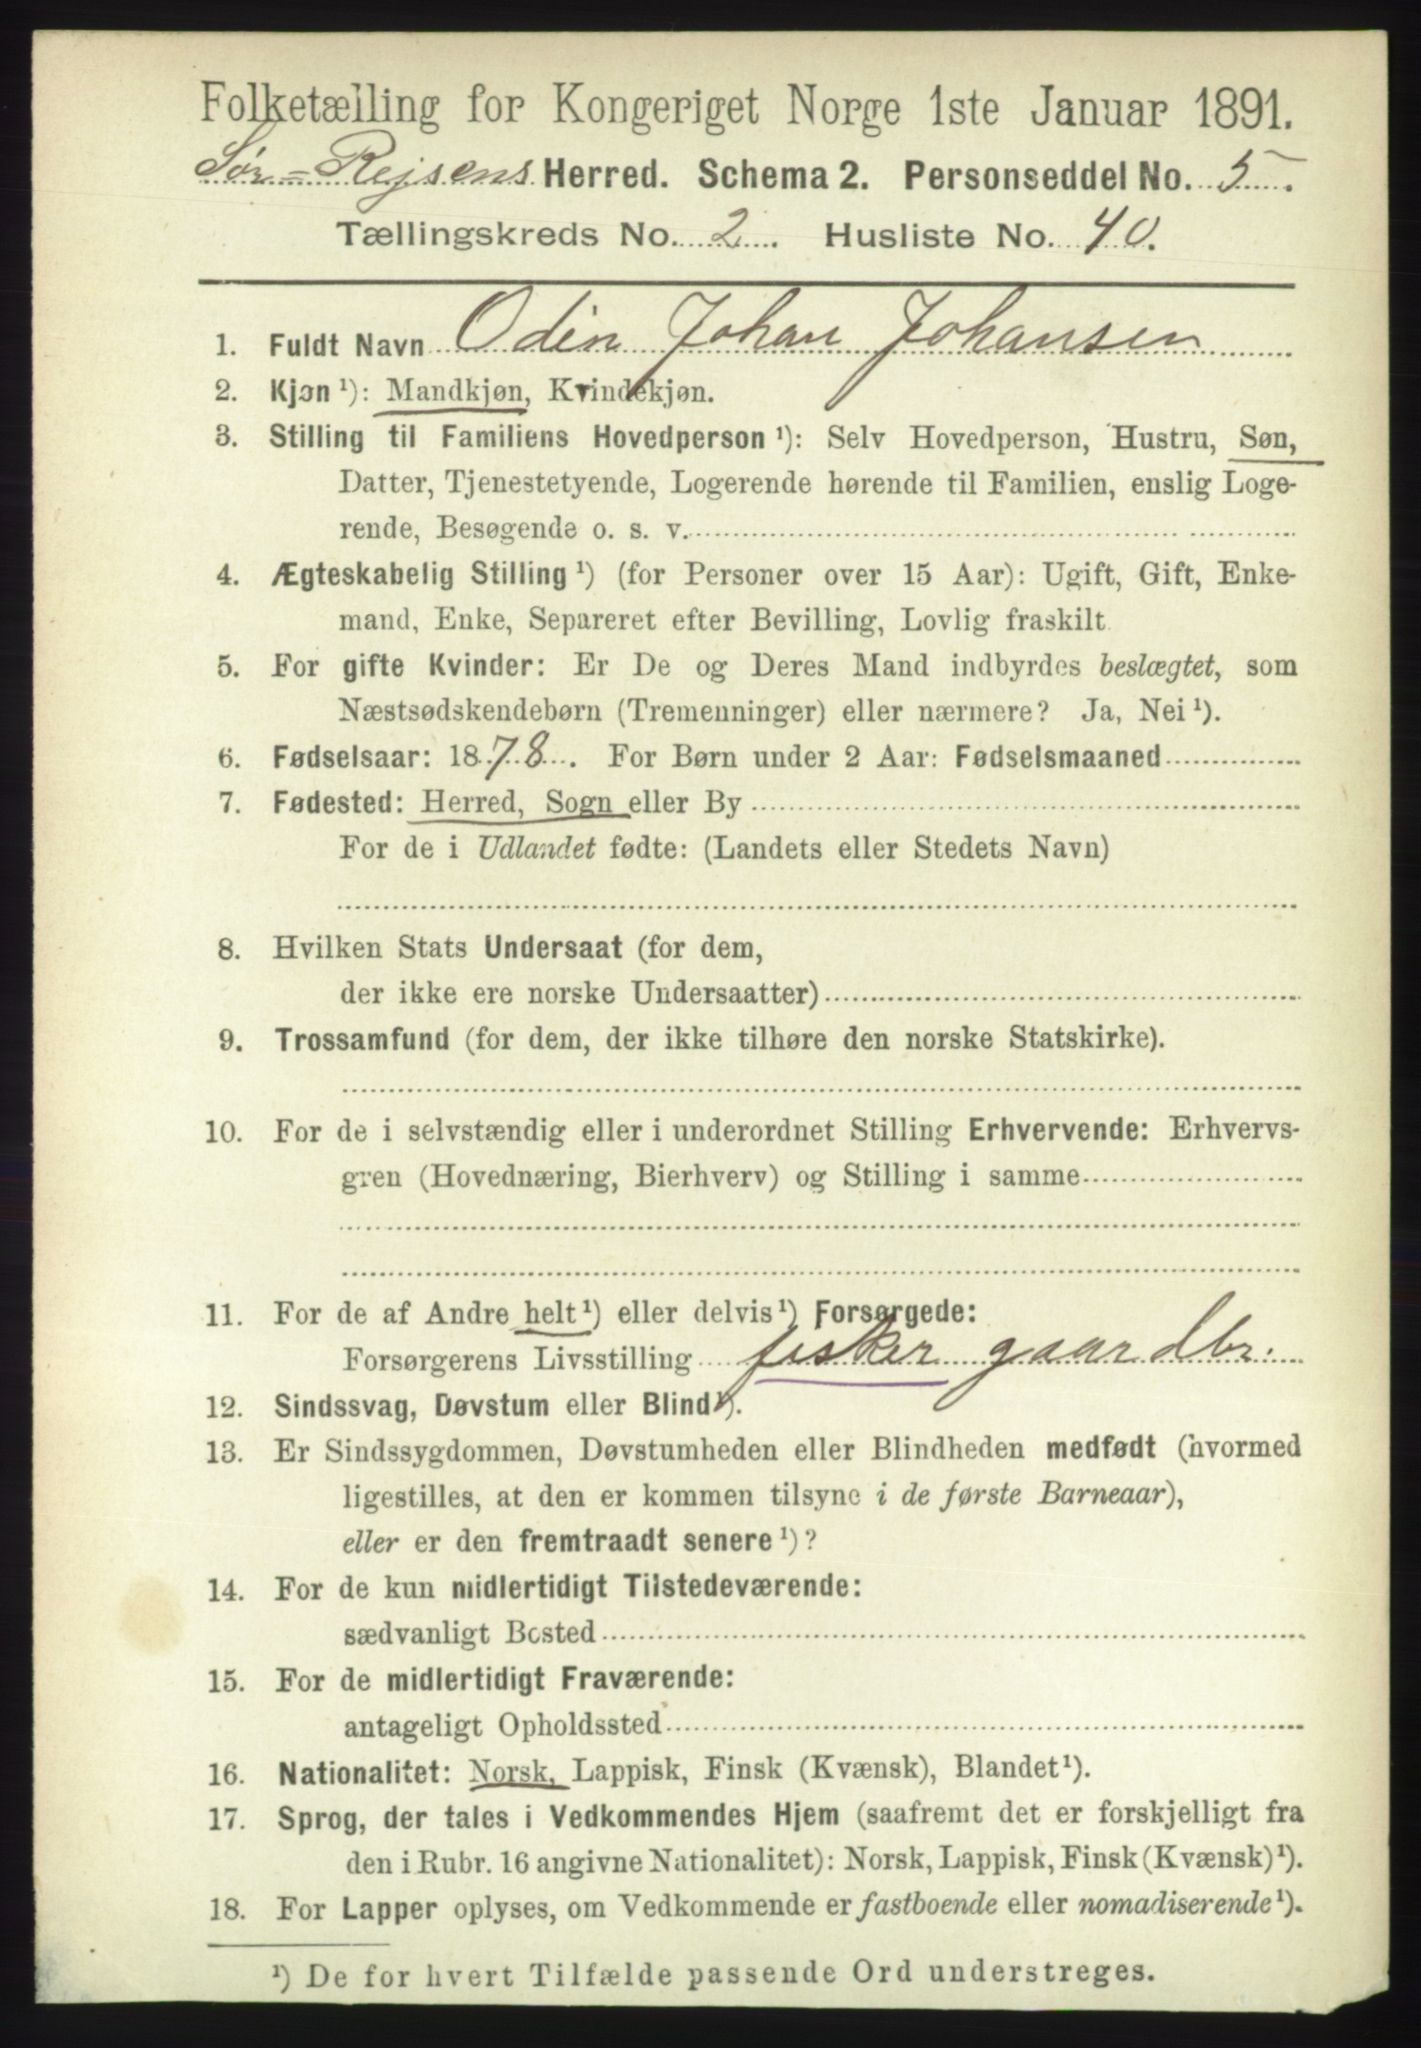 Folketælling for Kongeriget Norge 1ste Januar 1891.
Sør-Rejsens Herred. Schema 2. Personseddel No. 5.
Tællingskreds No. 2. Husliste No. 40.
1. Fuldt Navn Odin Johan Johansen
2. Kjøn ¹): Mandkjøn, Kvindekjøn.
3. Stilling til Familiens Hovedperson ¹): Selv Hovedperson, Hustru, Søn,
Datter, Tjenestetyende, Logerende hørende til Familien, enslig Loge-
rende, Besøgende o. s. v.
4. Ægteskabelig Stilling ¹) (for Personer over 15 Aar): Ugift, Gift, Enke-
mand, Enke, Separeret efter Bevilling, Lovlig fraskilt
5. For gifte Kvinder: Er De og Deres Mand indbyrdes beslægtet, som
Næstsødskendebørn (Tremenninger) eller nærmere? Ja, Nei ¹).
6. Fødselsaar: 1878. For Børn under 2 Aar: Fødselsmaaned
7. Fødested: Herred, Sogn eller By
For de i Udlandet fødte: (Landets eller Stedets Navn)
8. Hvilken Stats Undersaat (for dem,
der ikke ere norske Undersaatter)
9. Trossamfund (for dem, der ikke tilhøre den norske Statskirke).
10. For de i selvstændig eller i underordnet Stilling Erhvervende: Erhvervs-
gren (Hovednæring, Bierhverv) og Stilling i samme
11. For de af Andre helt ¹) eller delvis ¹) Forsørgede:
Forsørgerens Livsstilling fisker gaardbr.
12. Sindssvag, Døvstum eller Blind ¹).
13. Er Sindssygdommen, Døvstumheden eller Blindheden medfødt (hvormed
ligestilles, at den er kommen tilsyne i de første Barneaar),
eller er den fremtraadt senere ¹)?
14. For de kun midlertidigt Tilstedeværende:
sædvanligt Bosted
15. For de midlertidigt Fraværende:
antageligt Opholdssted
16. Nationalitet: Norsk, Lappisk, Finsk (Kvænsk), Blandet ¹).
17. Sprog, der tales i Vedkommendes Hjem (saafremt det er forskjelligt fra
den i Rubr. 16 angivne Nationalitet): Norsk, Lappisk, Finsk (Kvænsk) ¹).
18. For Lapper oplyses, om Vedkommende er fastboende eller nomadiserende ¹).
¹) De for hvert Tilfælde passende Ord understreges.